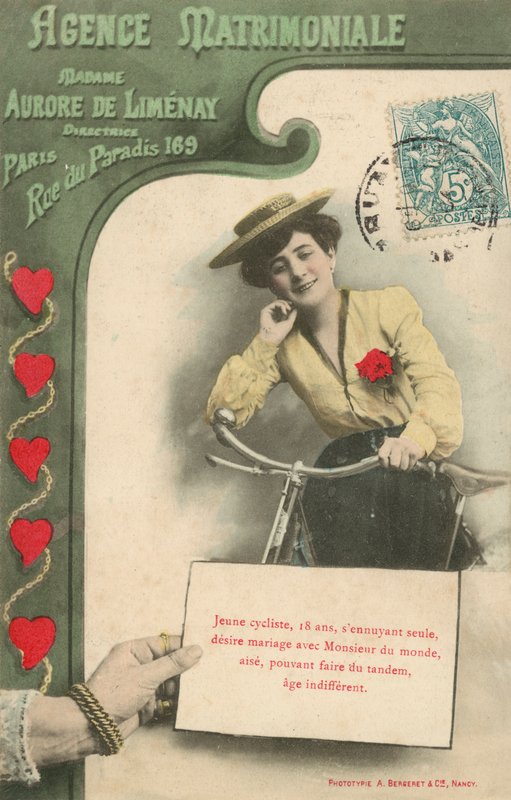 AGENCE MATRIMONIALE
MADAME
AURORE DE LIMÉNAY
DIRECTRICE
PARIS
Rue du Paradis 169
5c
POSTES
Jeune cycliste, 18 ans, s'ennuyant seule,
désire mariage avec Monsieur du monde,
aisé, pouvant faire du tandem,
âge indifférent.
PHOTOTYPIE A. BERGERET & Cie, NANCY.